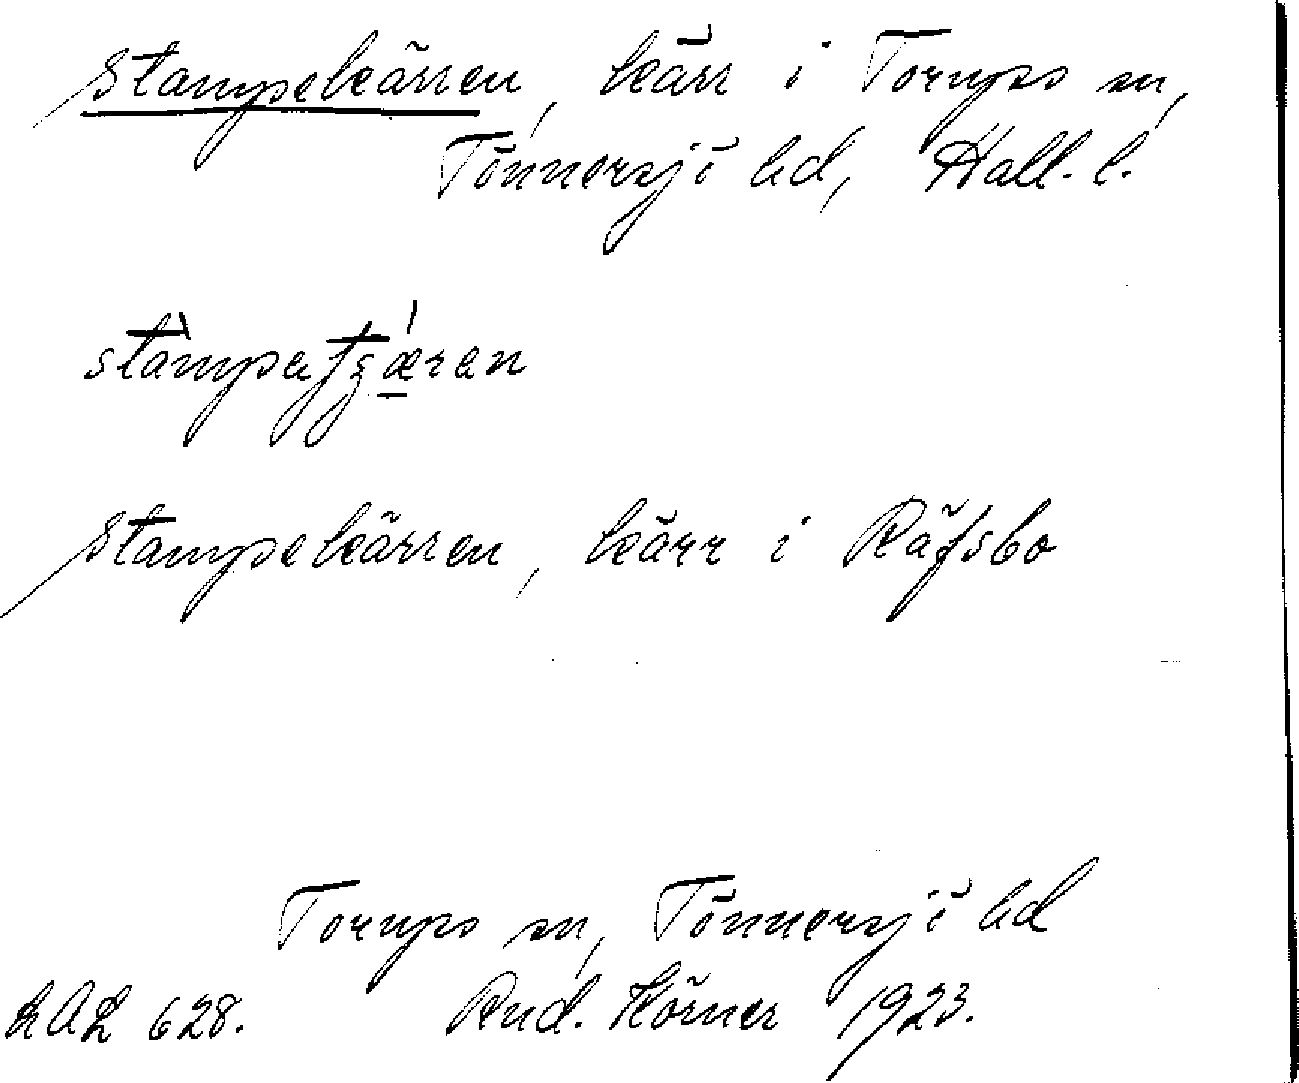 Stampekärren, kärr i Torups sn,
Tönnersjö hd, Hall. l.
Stampekärren, kärr i Räfsbo
Torups sn, Tönnersjö hd
LAL 628. Rud. Körner 1923.